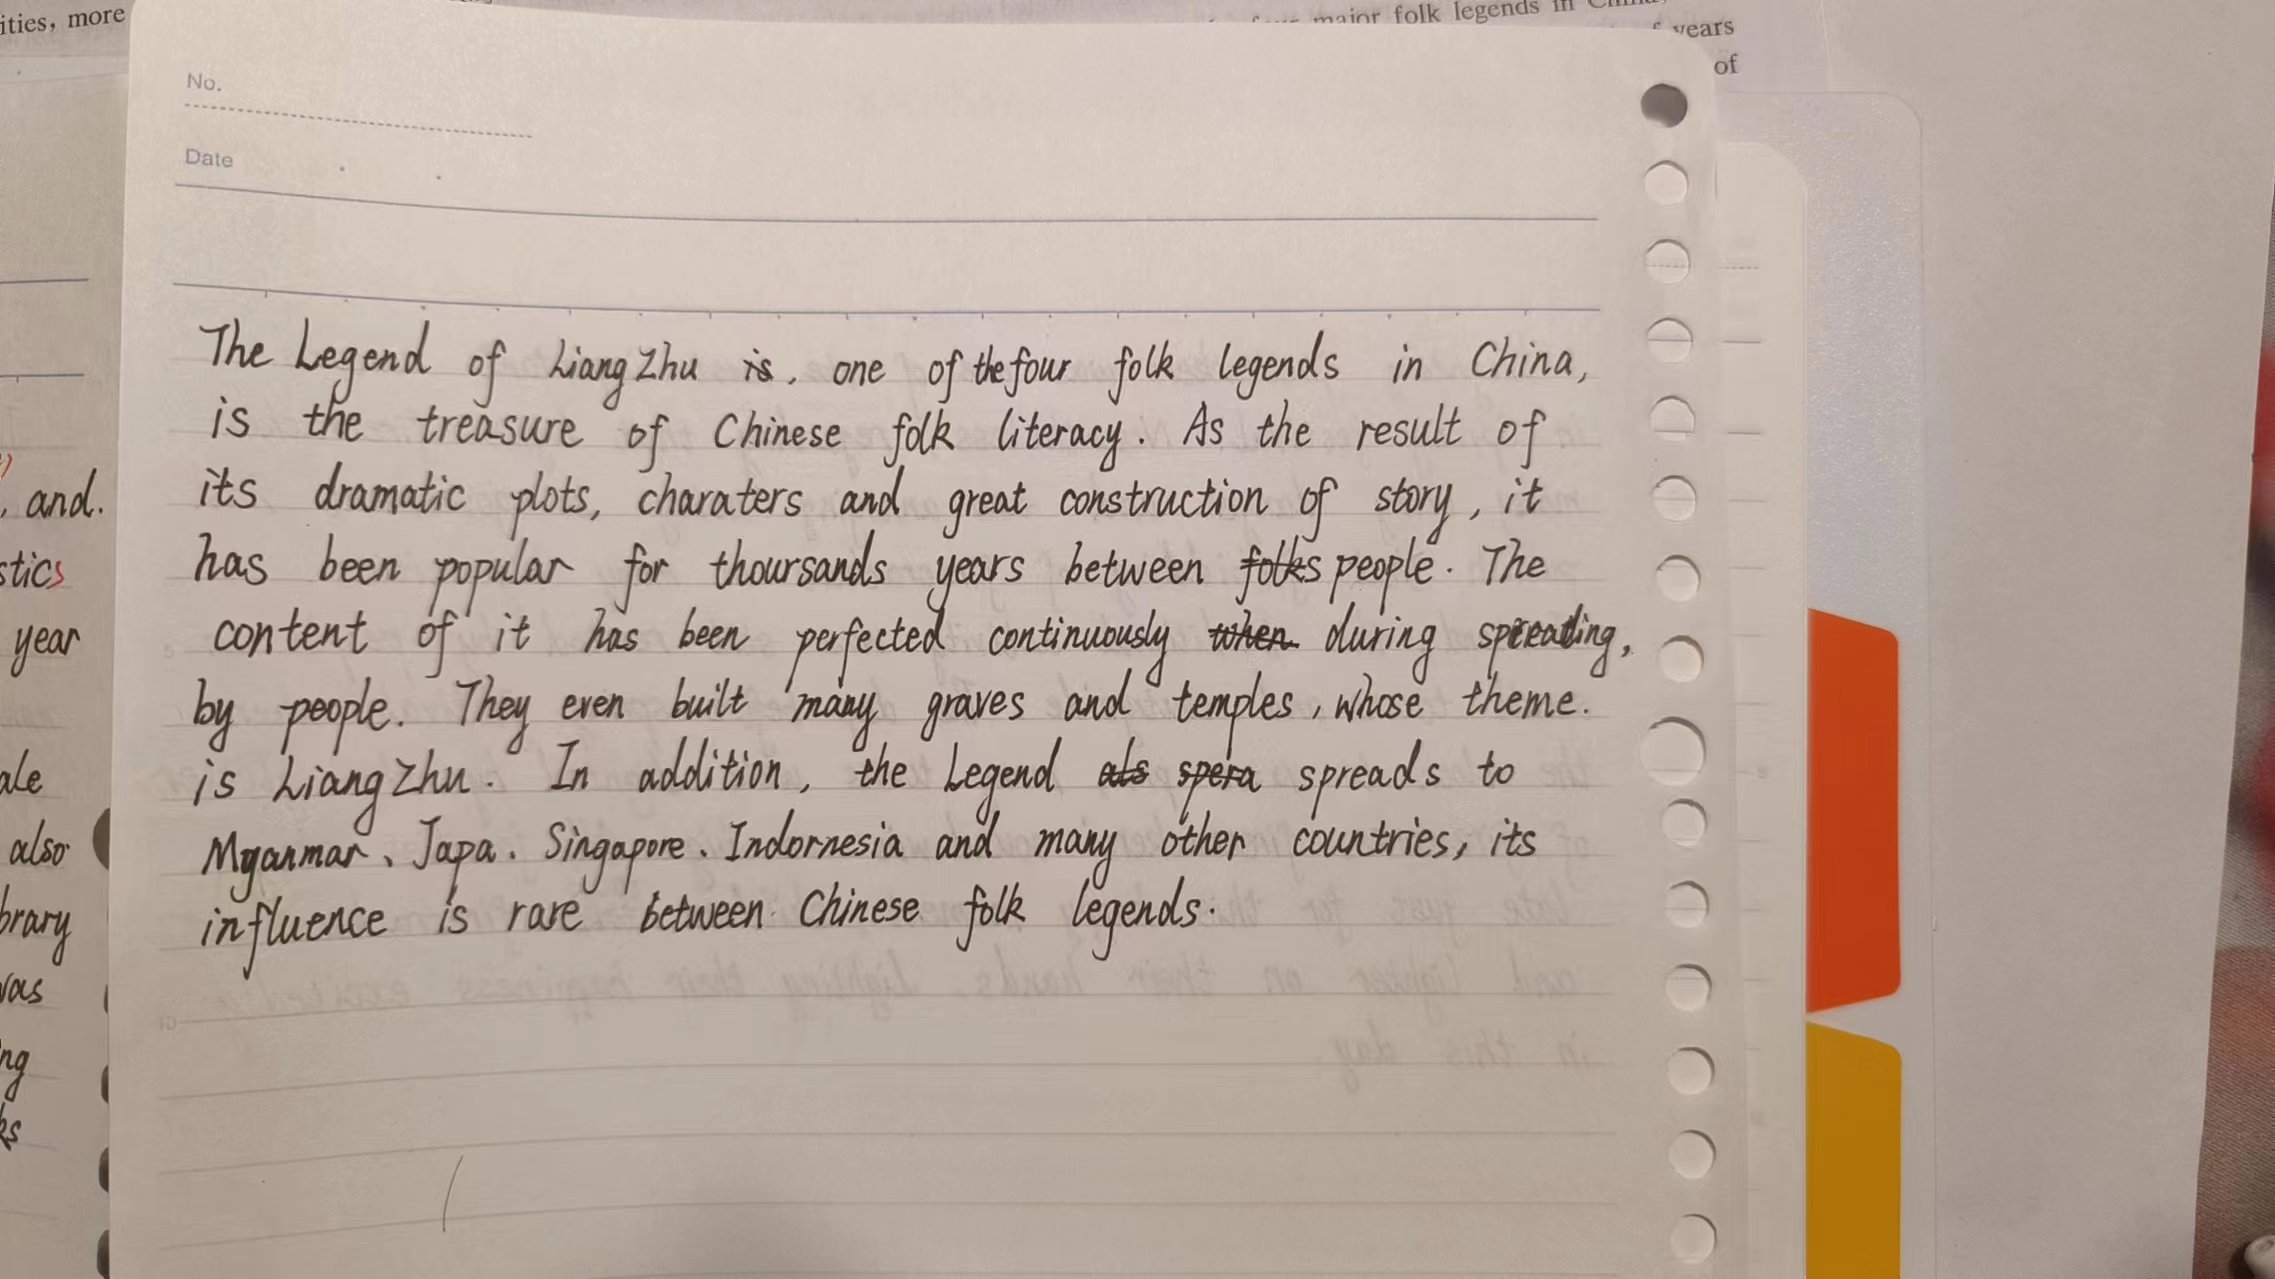 ities, more
major folk legends in China,
years
of
No.
Date
The Legend of LiangZhu is, one of the four folk legends in China,
is the treasure of Chinese folk literacy. As the result of
its dramatic plots, charaters and great construction of story, it
has been popular for thoursands years between folks people. The
content of it has been perfected continuously when during spreading,
by people. They even built many graves and temples, whose theme.
is LiangZhu. In addition, the Legend als spera spreads to
Myanmar、Japa、Singapore、Indornesia and many other countries, its
influence is rare between Chinese folk legends.
, and.
stics
year
ale
also
brary
was
ng
ks
5
10